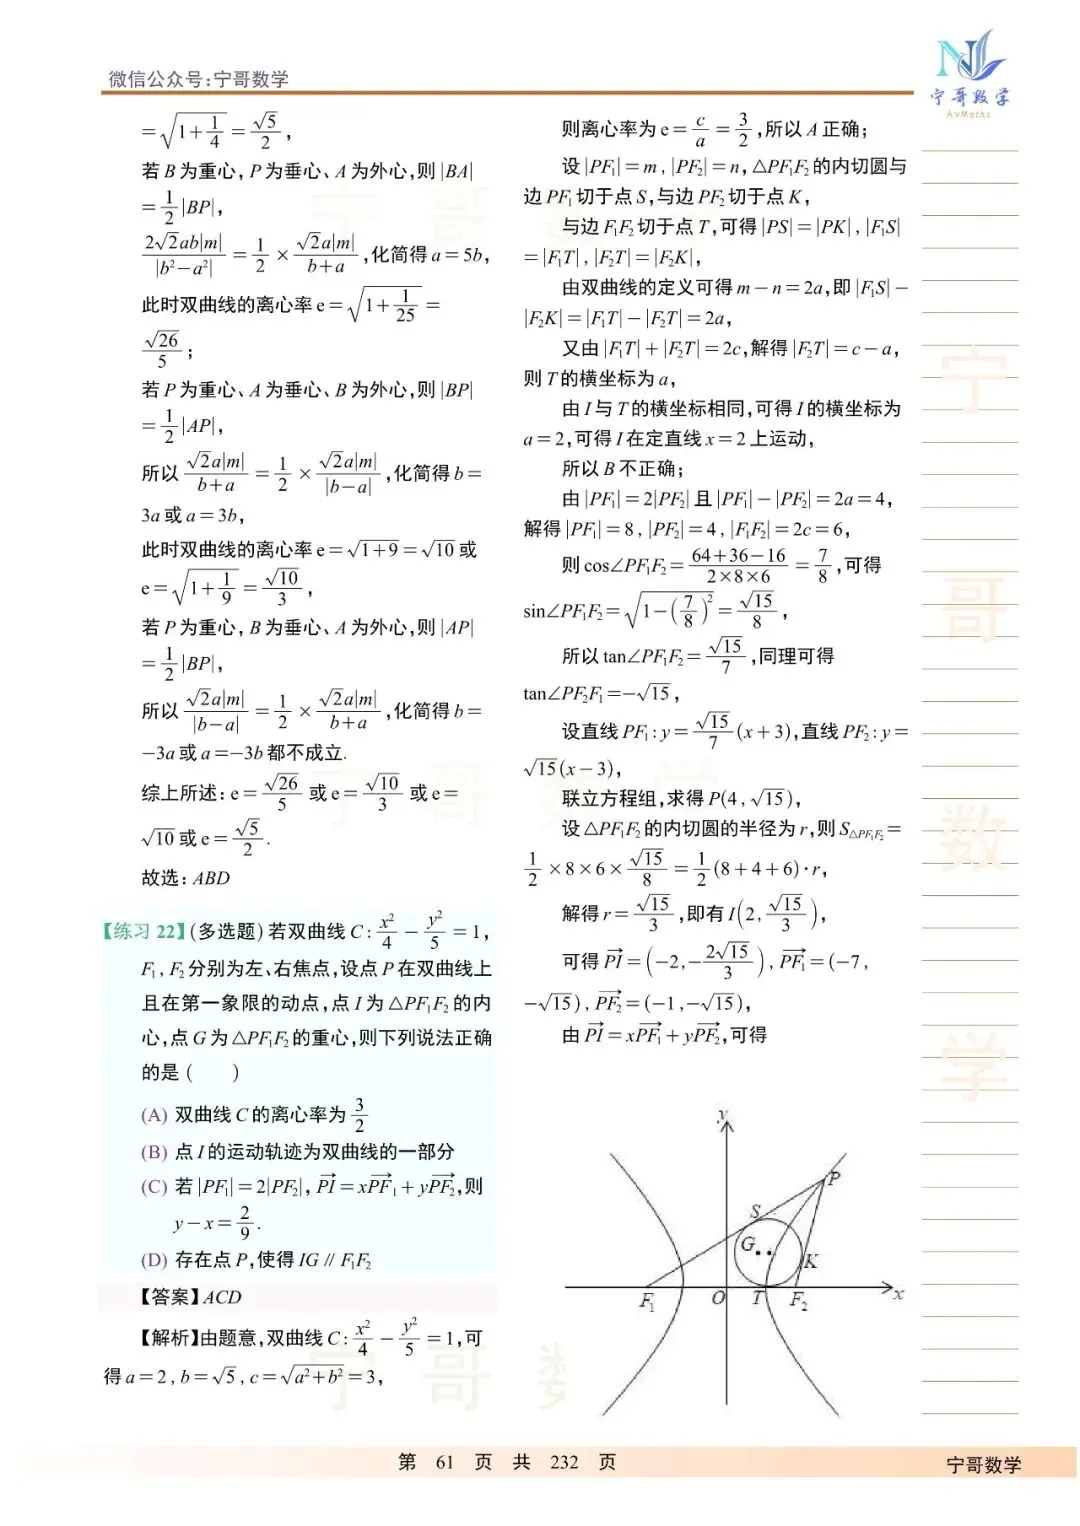 微信公众号:宁哥数学
宁哥数学
AvMaths
=√(1+1/4)=√5/2,
若B为重心, P为垂心、A为外心,则|BA|
=1/2|BP|,
2√2ab|m|/|b²−a²|=1/2×√2a|m|/(b+a),化简得a=5b,
此时双曲线的离心率e=√(1+1/25)=
√26/5;
若P为重心、A为垂心、B为外心,则|BP|
=1/2|AP|,
所以√2a|m|/(b+a)=1/2×√2a|m|/|b−a|,化简得b=
3a或a=3b,
此时双曲线的离心率e=√(1+9)=√10或
e=√(1+1/9)=√10/3,
若P为重心, B为垂心、A为外心,则|AP|
=1/2|BP|,
所以√2a|m|/|b−a|=1/2×√2a|m|/(b+a),化简得b=
−3a或a=−3b都不成立.
综上所述:e=√26/5或e=√10/3或e=
√10或e=√5/2.
故选:ABD
【练习22】(多选题)若双曲线C:x²/4−y²/5=1,
F₁,F₂分别为左、右焦点,设点P在双曲线上
且在第一象限的动点,点I为△PF₁F₂的内
心,点G为△PF₁F₂的重心,则下列说法正确
的是( )
(A) 双曲线C的离心率为3/2
(B) 点I的运动轨迹为双曲线的一部分
(C) 若|PF₁|=2|PF₂|, PI→=xPF₁→+yPF₂→,则
y−x=2/9.
(D) 存在点P,使得IG∥F₁F₂
【答案】ACD
【解析】由题意,双曲线C:x²/4−y²/5=1,可
得a=2,b=√5,c=√(a²+b²)=3,
则离心率为e=c/a=3/2,所以A正确;
设|PF₁|=m,|PF₂|=n,△PF₁F₂的内切圆与
边PF₁切于点S,与边PF₂切于点K,
与边F₁F₂切于点T,可得|PS|=|PK|,|F₁S|
=|F₁T|,|F₂T|=|F₂K|,
由双曲线的定义可得m−n=2a,即|F₁S|−
|F₂K|=|F₁T|−|F₂T|=2a,
又由|F₁T|+|F₂T|=2c,解得|F₂T|=c−a,
则T的横坐标为a,
由I与T的横坐标相同,可得I的横坐标为
a=2,可得I在定直线x=2上运动,
所以B不正确;
由|PF₁|=2|PF₂|且|PF₁|−|PF₂|=2a=4,
解得|PF₁|=8,|PF₂|=4,|F₁F₂|=2c=6,
则cos∠PF₁F₂=(64+36−16)/(2×8×6)=7/8,可得
sin∠PF₁F₂=√(1−(7/8)²)=√15/8,
所以tan∠PF₁F₂=√15/7,同理可得
tan∠PF₂F₁=−√15,
设直线PF₁:y=√15/7(x+3),直线PF₂:y=
√15(x−3),
联立方程组,求得P(4,√15),
设△PF₁F₂的内切圆的半径为r,则S△PF₁F₂=
1/2×8×6×√15/8=1/2(8+4+6)·r,
解得r=√15/3,即有I(2,√15/3),
可得PI→=(−2,−2√15/3),PF₁→=(−7,
−√15),PF₂→=(−1,−√15),
由PI→=xPF₁→+yPF₂→,可得
y
P
S
G
K
F₁
O
T
F₂
x
宁
哥
数
学
第 61 页 共 232 页
宁哥数学